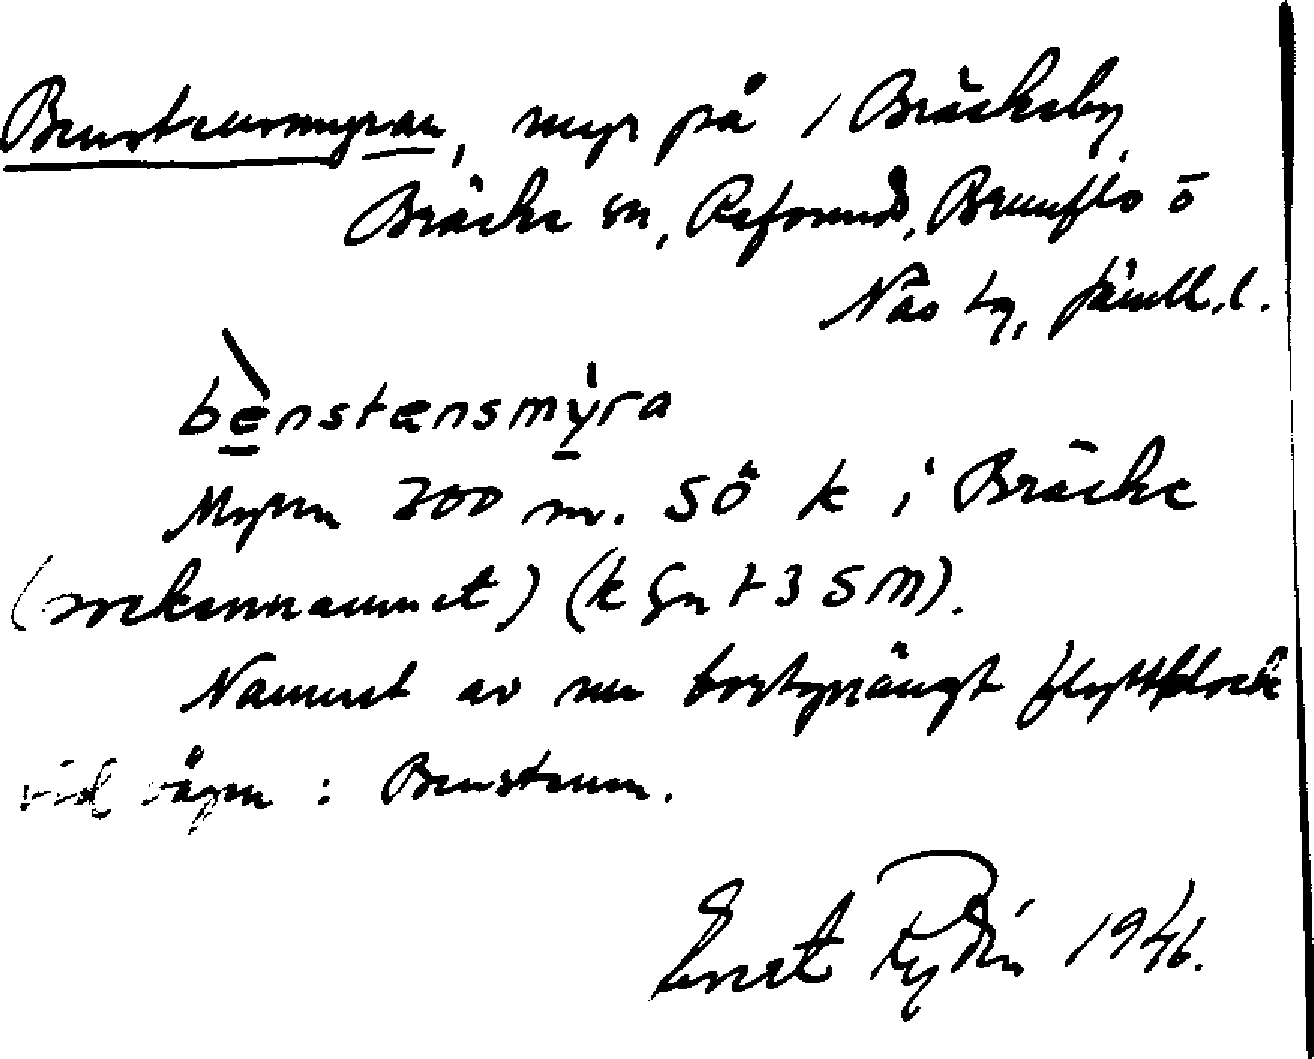 Benstensmyran, myr på 1 Bräcke by,
Bräcke sn, Refsunds, Brunflo o
Näs tg, Jämtl. l.
bènstænsmỳra
Myren 200 m. SÖ k i Bräcke
(sockennamnet) (k Gn t 3 S M).
Namnet av en bortsprängt flyttblock
vid vägen: Benstenen.
Ernst Rydén 1946.